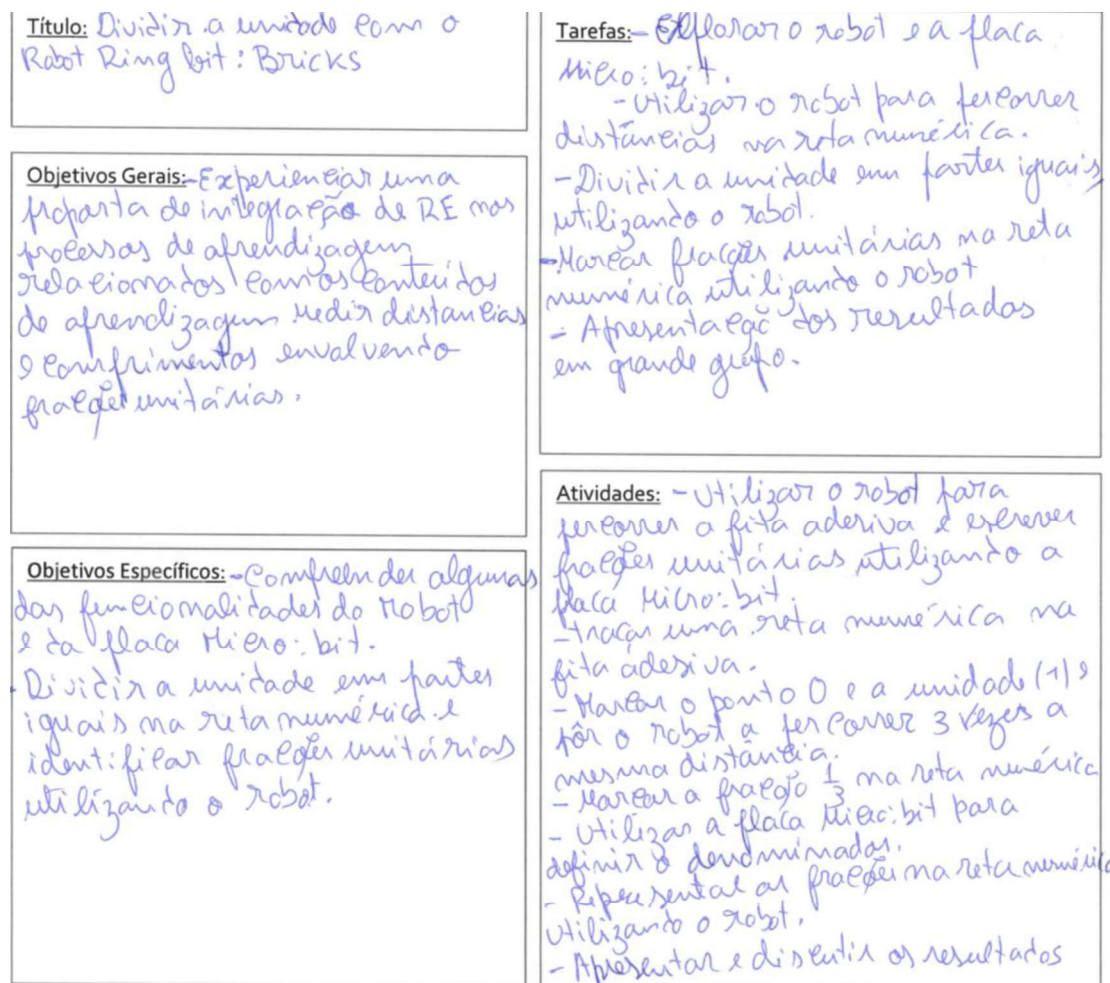 Título: Dividir a unidade com o
Robot Ring bit: Bricks
Objetivos Gerais: - Experienciar uma
proposta de integração de RE nos
processos de aprendizagem
relacionados com os conteúdos
de aprendizagem medir distancias
e comprimentos envolvendo
frações unitárias.
Objetivos Específicos: - Compreender algumas
das funcionalidades do robot
e da placa Micro: bit.
- Dividir a unidade em partes
iguais na reta numérica e
identificar frações unitárias
utilizando o robot.
Tarefas: - Explorar o robot e a placa
Micro: bit.
- Utilizar o robot para percorrer
distâncias na reta numérica.
- Dividir a unidade em partes iguais
utilizando o robot.
- Marcar fracções unitárias na reta
numérica utilizando o robot
- Apresentação dos resultados
em grande grupo.
Atividades: - Utilizar o robot para
percorrer a fita adesiva e escrever
frações unitárias utilizando a
placa Micro: bit.
- traçar uma reta numérica na
fita adesiva.
- Marcar o ponto 0 e a unidade (1) e
pôr o robot a percorrer 3 vezes a
mesma distância.
- Marcar a fração 1/3 na reta numérica
- Utilizar a placa Micro: bit para
definir o denominador.
- Representar as frações na reta numérica
utilizando o robot.
- Apresentar e discutir os resultados